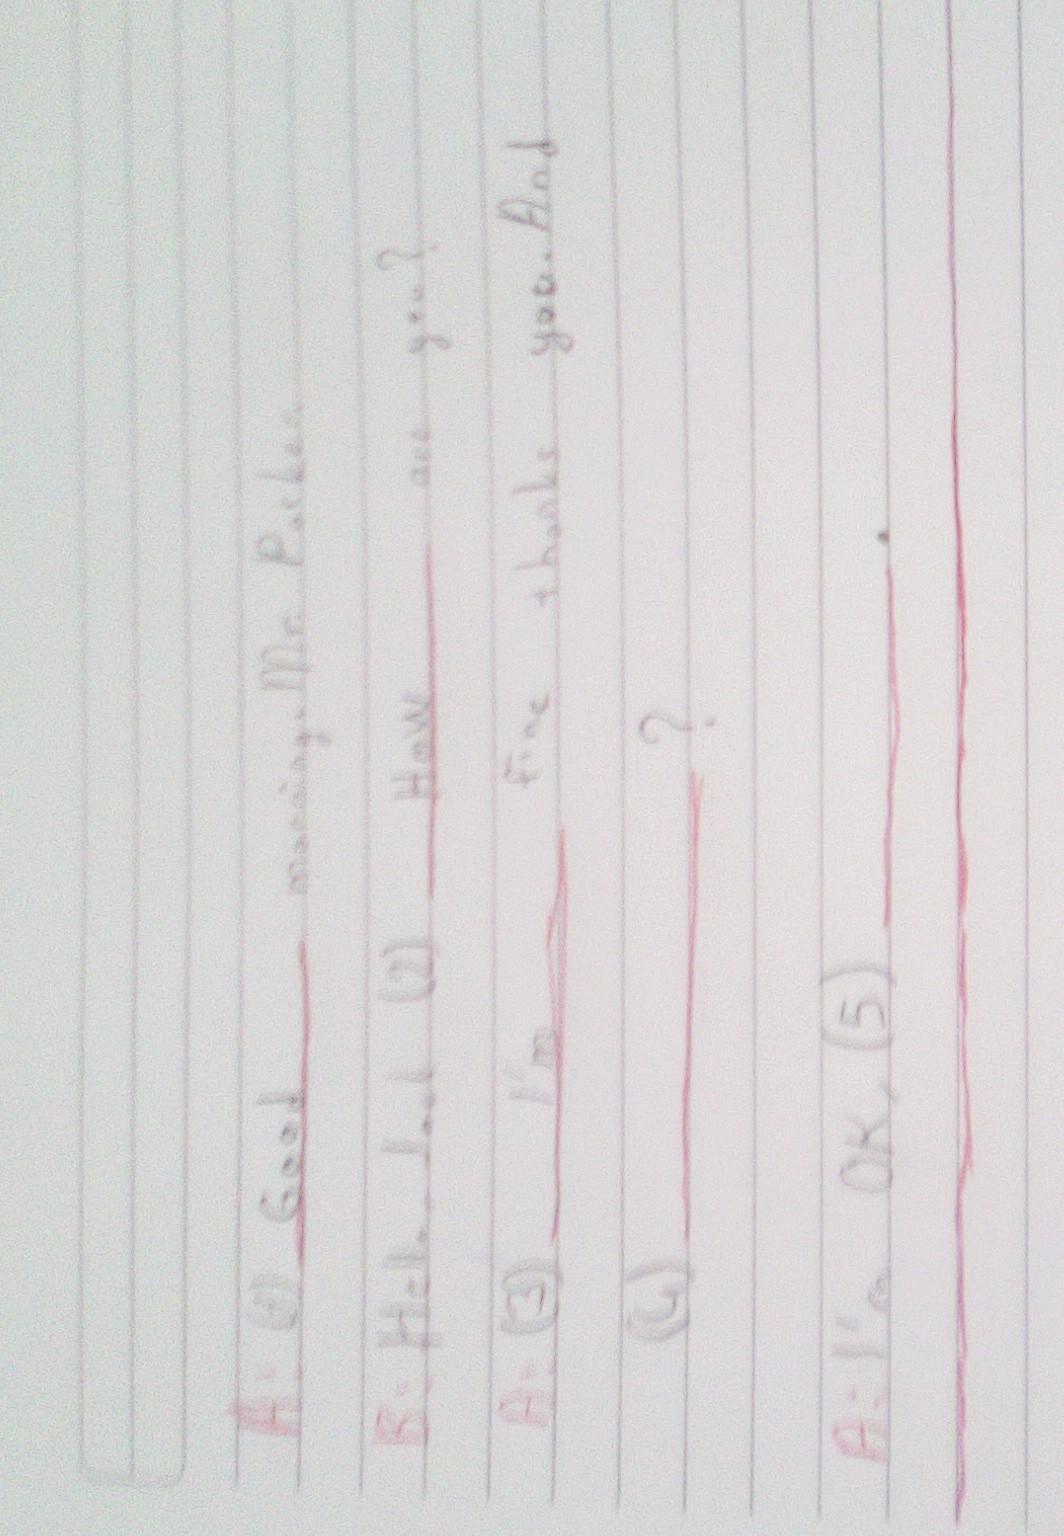 A: (1) Good morning, Mr. Parker
B: Hello, (2) How are you?
A: (3) I'm Fine thanks you. And
(4) ?
A: I'm OK, (5) .